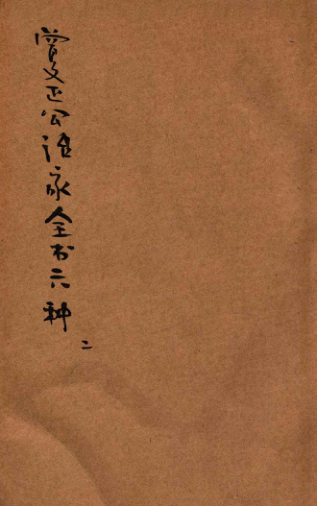 曾文正公治家全书六种
二